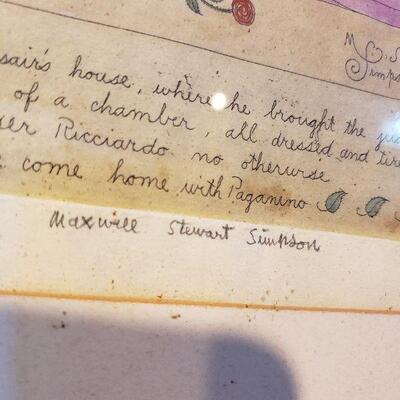 M S
Simps
sair's house, where he brought the
of a chamber, all dressed and tire
er Ricciardo no otherwise
come home with Paganino
Maxwell Stewart Simpson